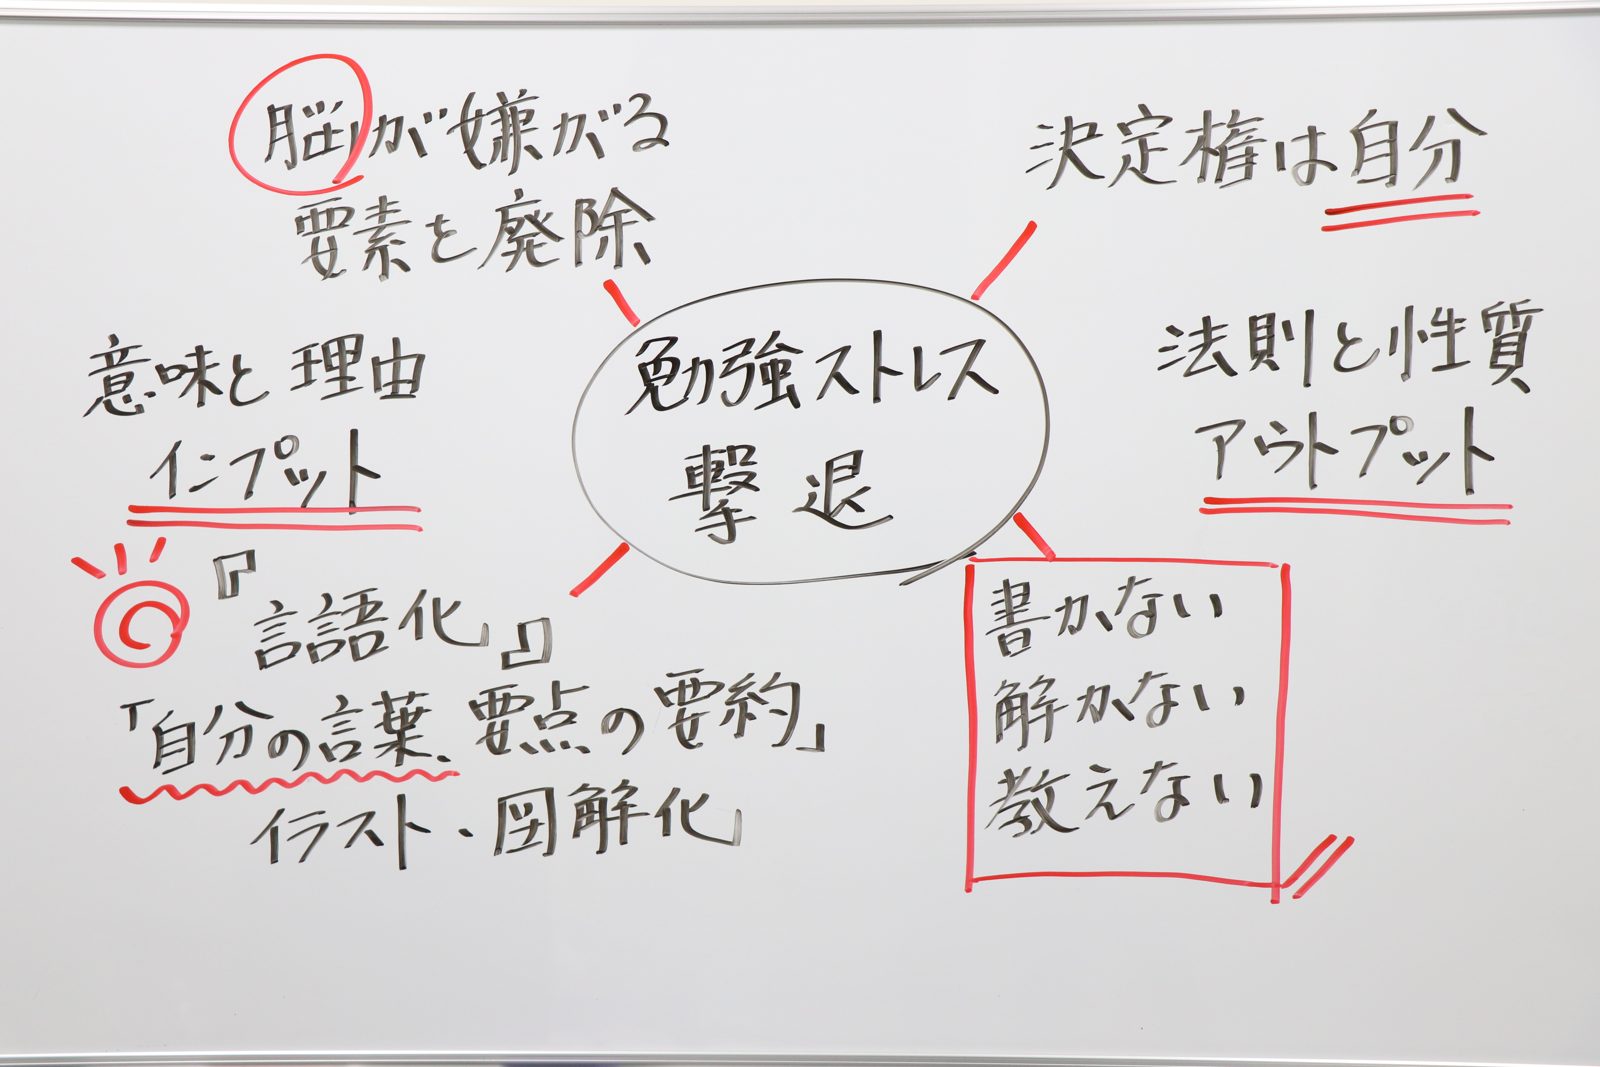 脳が嫌がる
要素を廃除
決定権は自分
勉強ストレス
撃退
意味と理由
インプット
法則と性質
アウトプット
『言語化』
「自分の言葉、要点の要約」
イラスト・図解化
書かない
解かない
教えない